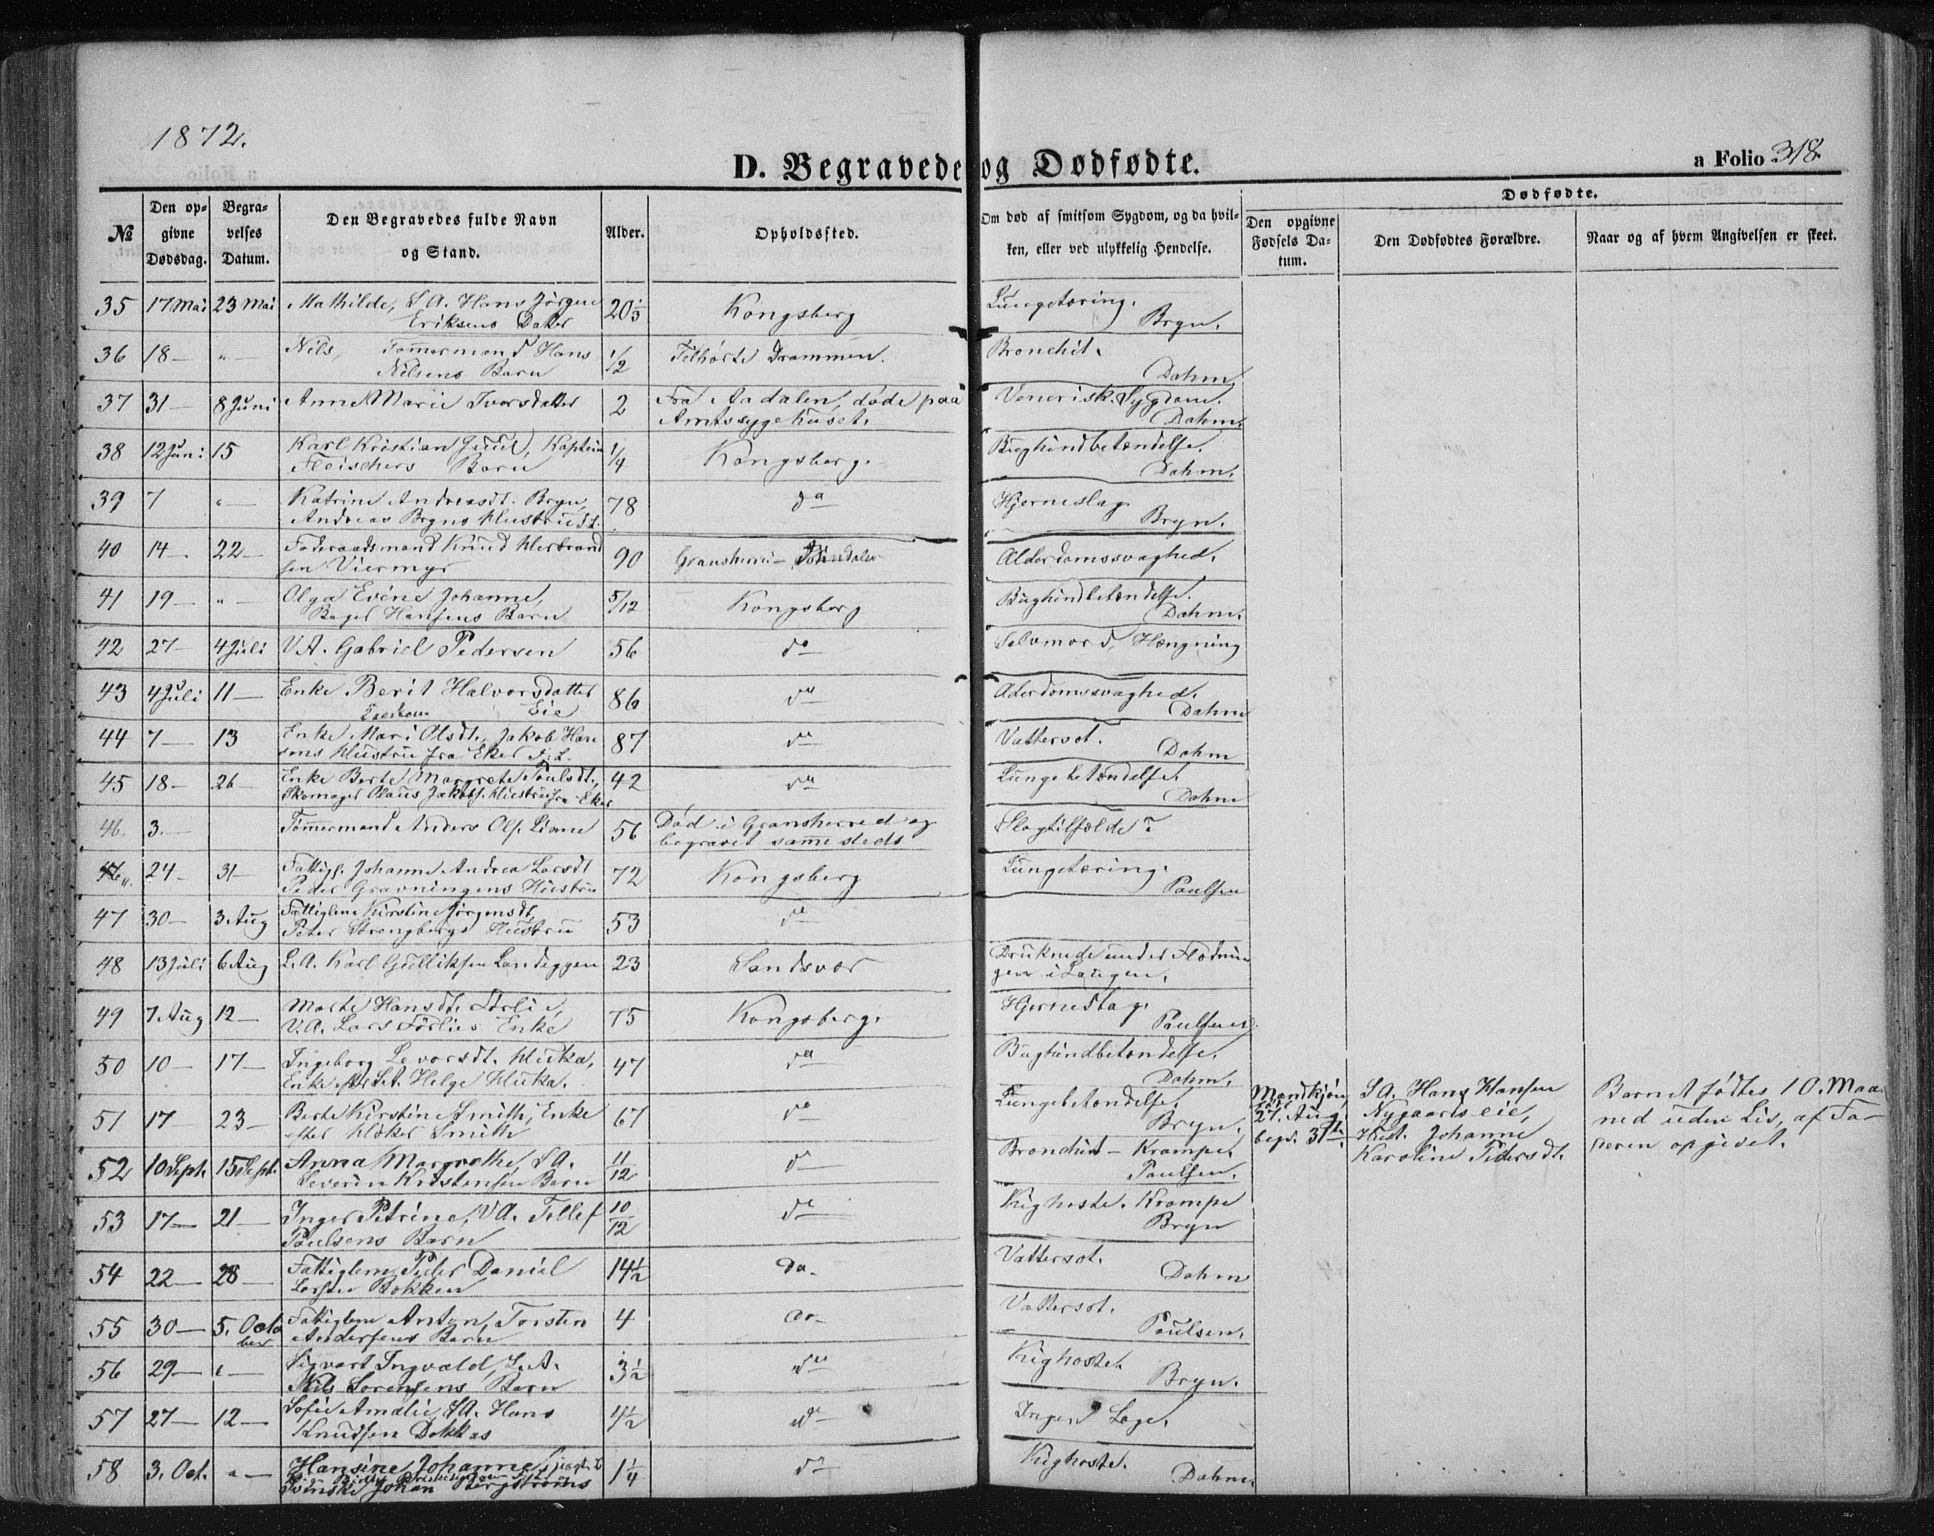 1872.
D. Begravede og Dødfødte.
a Folio 318.
№
Den opgivne Dødsdag.
Begravelses Datum.
Den Begravedes fulde Navn og Stand.
Alder.
Opholdssted.
Om død af smitsom Sygdom, og da hvilken, eller ved ulykkelig Hendelse.
Dødfødte.
Den opgivne Fødsels Datum.
Den Dødfødtes Forældre.
Naar og af hvem Angivelsen er skeet.
35 17 Mai 23 Mai Mathilde, S.A. Hans Jörgen 20 1/3 Kongsberg Lungetæring.
Eriksens Datter Bryn.
36 18 — " — Nils, Tömmermand Hans 1/2 Tilhørte Drammen. Bronchit.
Nilsens Barn Dahm
37 31 — 8 Juni Anne Marie Iversdatter 2 Fra Aadalen, døde paa Venerisk Sygdom.
Amtssygehuset. Dahm.
38 12 Juni 15 Karl Kristian Juul, Kaptein 1/4 Kongsberg. Bughindbetændelse.
Fleischers Barn Dahm.
39 7 " — Katrine Andreasdt. Bryn, 78 da Hjerneslag.
Andreas Bryns Hustru Bryn.
40 14 — 22 — Föderaadsmand Knud Herbrand 90 Gransherred Alderdomssvaghed.
sen Viermyr
41 19 — " — Olga Evine Johanne, 5/12 Kongsberg Bughindbetændelse.
Bager Hansens Barn Dahm.
42 27 — 4 Juli V.A. Gabriel Pedersen 56 da Selvmord, Hængning
43 4 Juli 11 — Enke Berit Halvorsdatter 86 da Alderdomssvaghed.
Eie Dahm
44 7 — 13 Enke Mari Olsdt. Jakob Han 87 da Vattersot.
sens Hustru fra Eker Dahm
45 18 — 26 — Enke Berte Margrete Poulsdt. 42 da Lungebetændelse.
Skomager Olaus Jakobs. Hustru fra Eker Dahm
46. 3. — Tömmermand Anders Ols. Liane 56 Död i Gransherred og Slagtilfælde?
begravet sammesteds
46 24 — 31 — Fattigl. Johanne Andrea Larsdt 72 Kongsberg Lungetæring.
Peder Gravningens Hustru Paulsen
47 30 — 3 Aug Fattiglem Kirstine Jörgensdt, 53 da
Peter Strengbergs Hustru
48 13 Juli 6 Aug L.A. Karl Gulliksen Landeggen 23 Sandsvær Druknede under Flødnin
gen i Laugen.
49 7 Aug 12 — Marte Hansdt. Förlie, 75 Kongsberg. Hjerneslag.
V.A. Lars Förlies Enke Paulsen
50 10 — 17 — Ingeborg Levorsdt. Huka, 47 da Bughindbetændelse.
Enke eft. S.A. Helge Huka. Dahm.
51 17 — 23 — Berte Kirstine Smith, Enke 67 da Lungebetændelse.
efter Höker Smith Bryn.
Mandkjön
27. Aug.
begr. 31te
S.A. Hans Hansen
Nygaardseie,
Hust. Johanne
Karoline Pedersdt.
Barnet födtes 10. Maa
ned uden Liv, af Fa
deren opgivet.
52 10 Sept. 15 Sept. Anna Margrethe, S.A. 11/12 da Bronchit — Krampe.
Severin Kristensen Barn Paulsen.
53 17 — 21 — Inger Petrine, V.A. Tollef 10/12 da Kighoste. Krampe
Paulsens Barn Bryn
54 22 — 28 — Fattiglem Peder Daniel 14 1/2 da Vattersot.
Larsen Bakken Dahm
55 30 — 5. Octo Fattiglem Anton, Torsten 4 do Vattersot.
ber Andersens Barn Paulsen.
56 29 — " — Sigvart Ingvald, L.A. 3 1/2 da Kighoste.
Nils Sorensens Barn Bryn.
57 27 — 12 — Sofie Amalie, S.A. Hans 4 1/2 da Ingen Læge.
Knudsen Dokkas
58 3. Oct. " — Hansine Johanne, 1 1/4 da Kighoste.
Svenske Johan Bergströms Dahm.